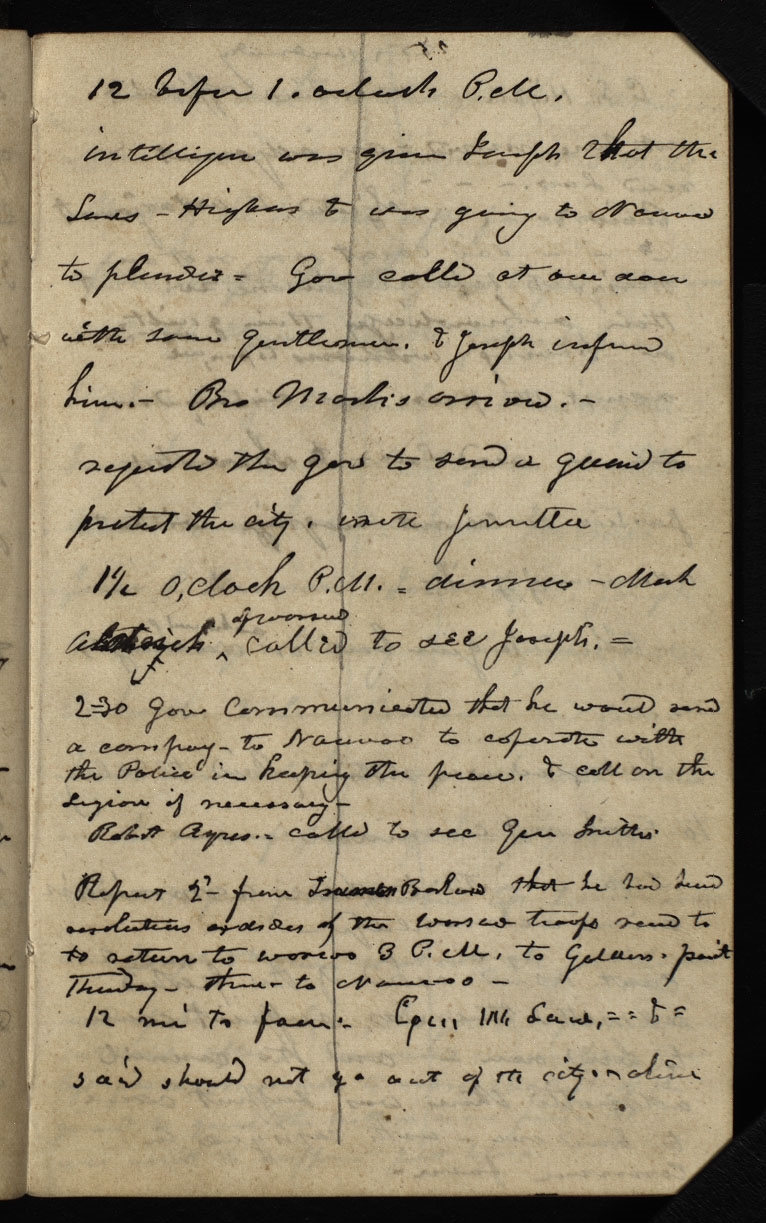 12 before 1. oclock P.M.
intelligen was given Joseph that the
Laws - Higbees & was going to Nauvoo
to plunder = Gov called at our door
with some gentlemen. & Joseph infrmd
him.- Bro Marks arrived.-
requested the gov to send a guard to
protect the city. wrote
1½ O,clock P.M. = dinner - Mark
Aldrich called to see Joseph. =
of warsaw
2-30 Gov Communicated that he would send
a compay - to Nauvoo to coperate with
the Police in keeping the peace. & call on the
Legion if necessary -
Robert Ayres.= called to see Gen Smiths.
Report 2d- from Barlow that he had heard
resolutions orders of the Warsaw troops read to
to return to warsaw 3 P.M. to Goldens. point
Thursday - thence to Nauvoo -
12 mi to = &=
said should not go out of the city alive